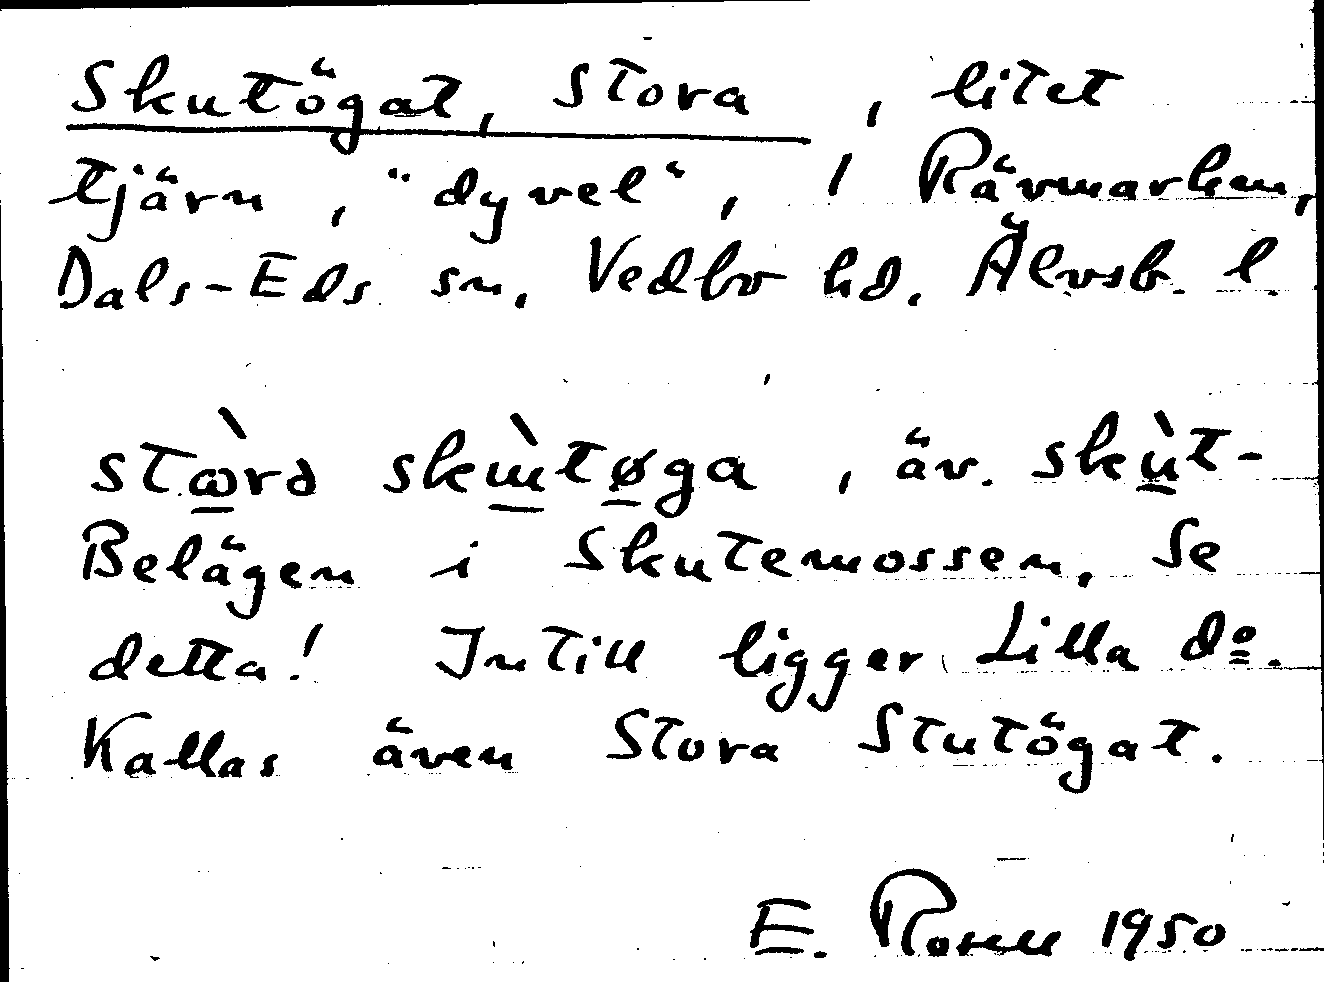 Skutögat, Stora, litet
tjärn, "dyvel", i Rävmarken,
Dals-Eds sn. Vedbo hd. Älvsb. l.
äv.
Belägen i Skutemossen. Se
detta! Intill ligger Lilla dº.
Kallas även Stora Stutögat.
E. Rosell 1950